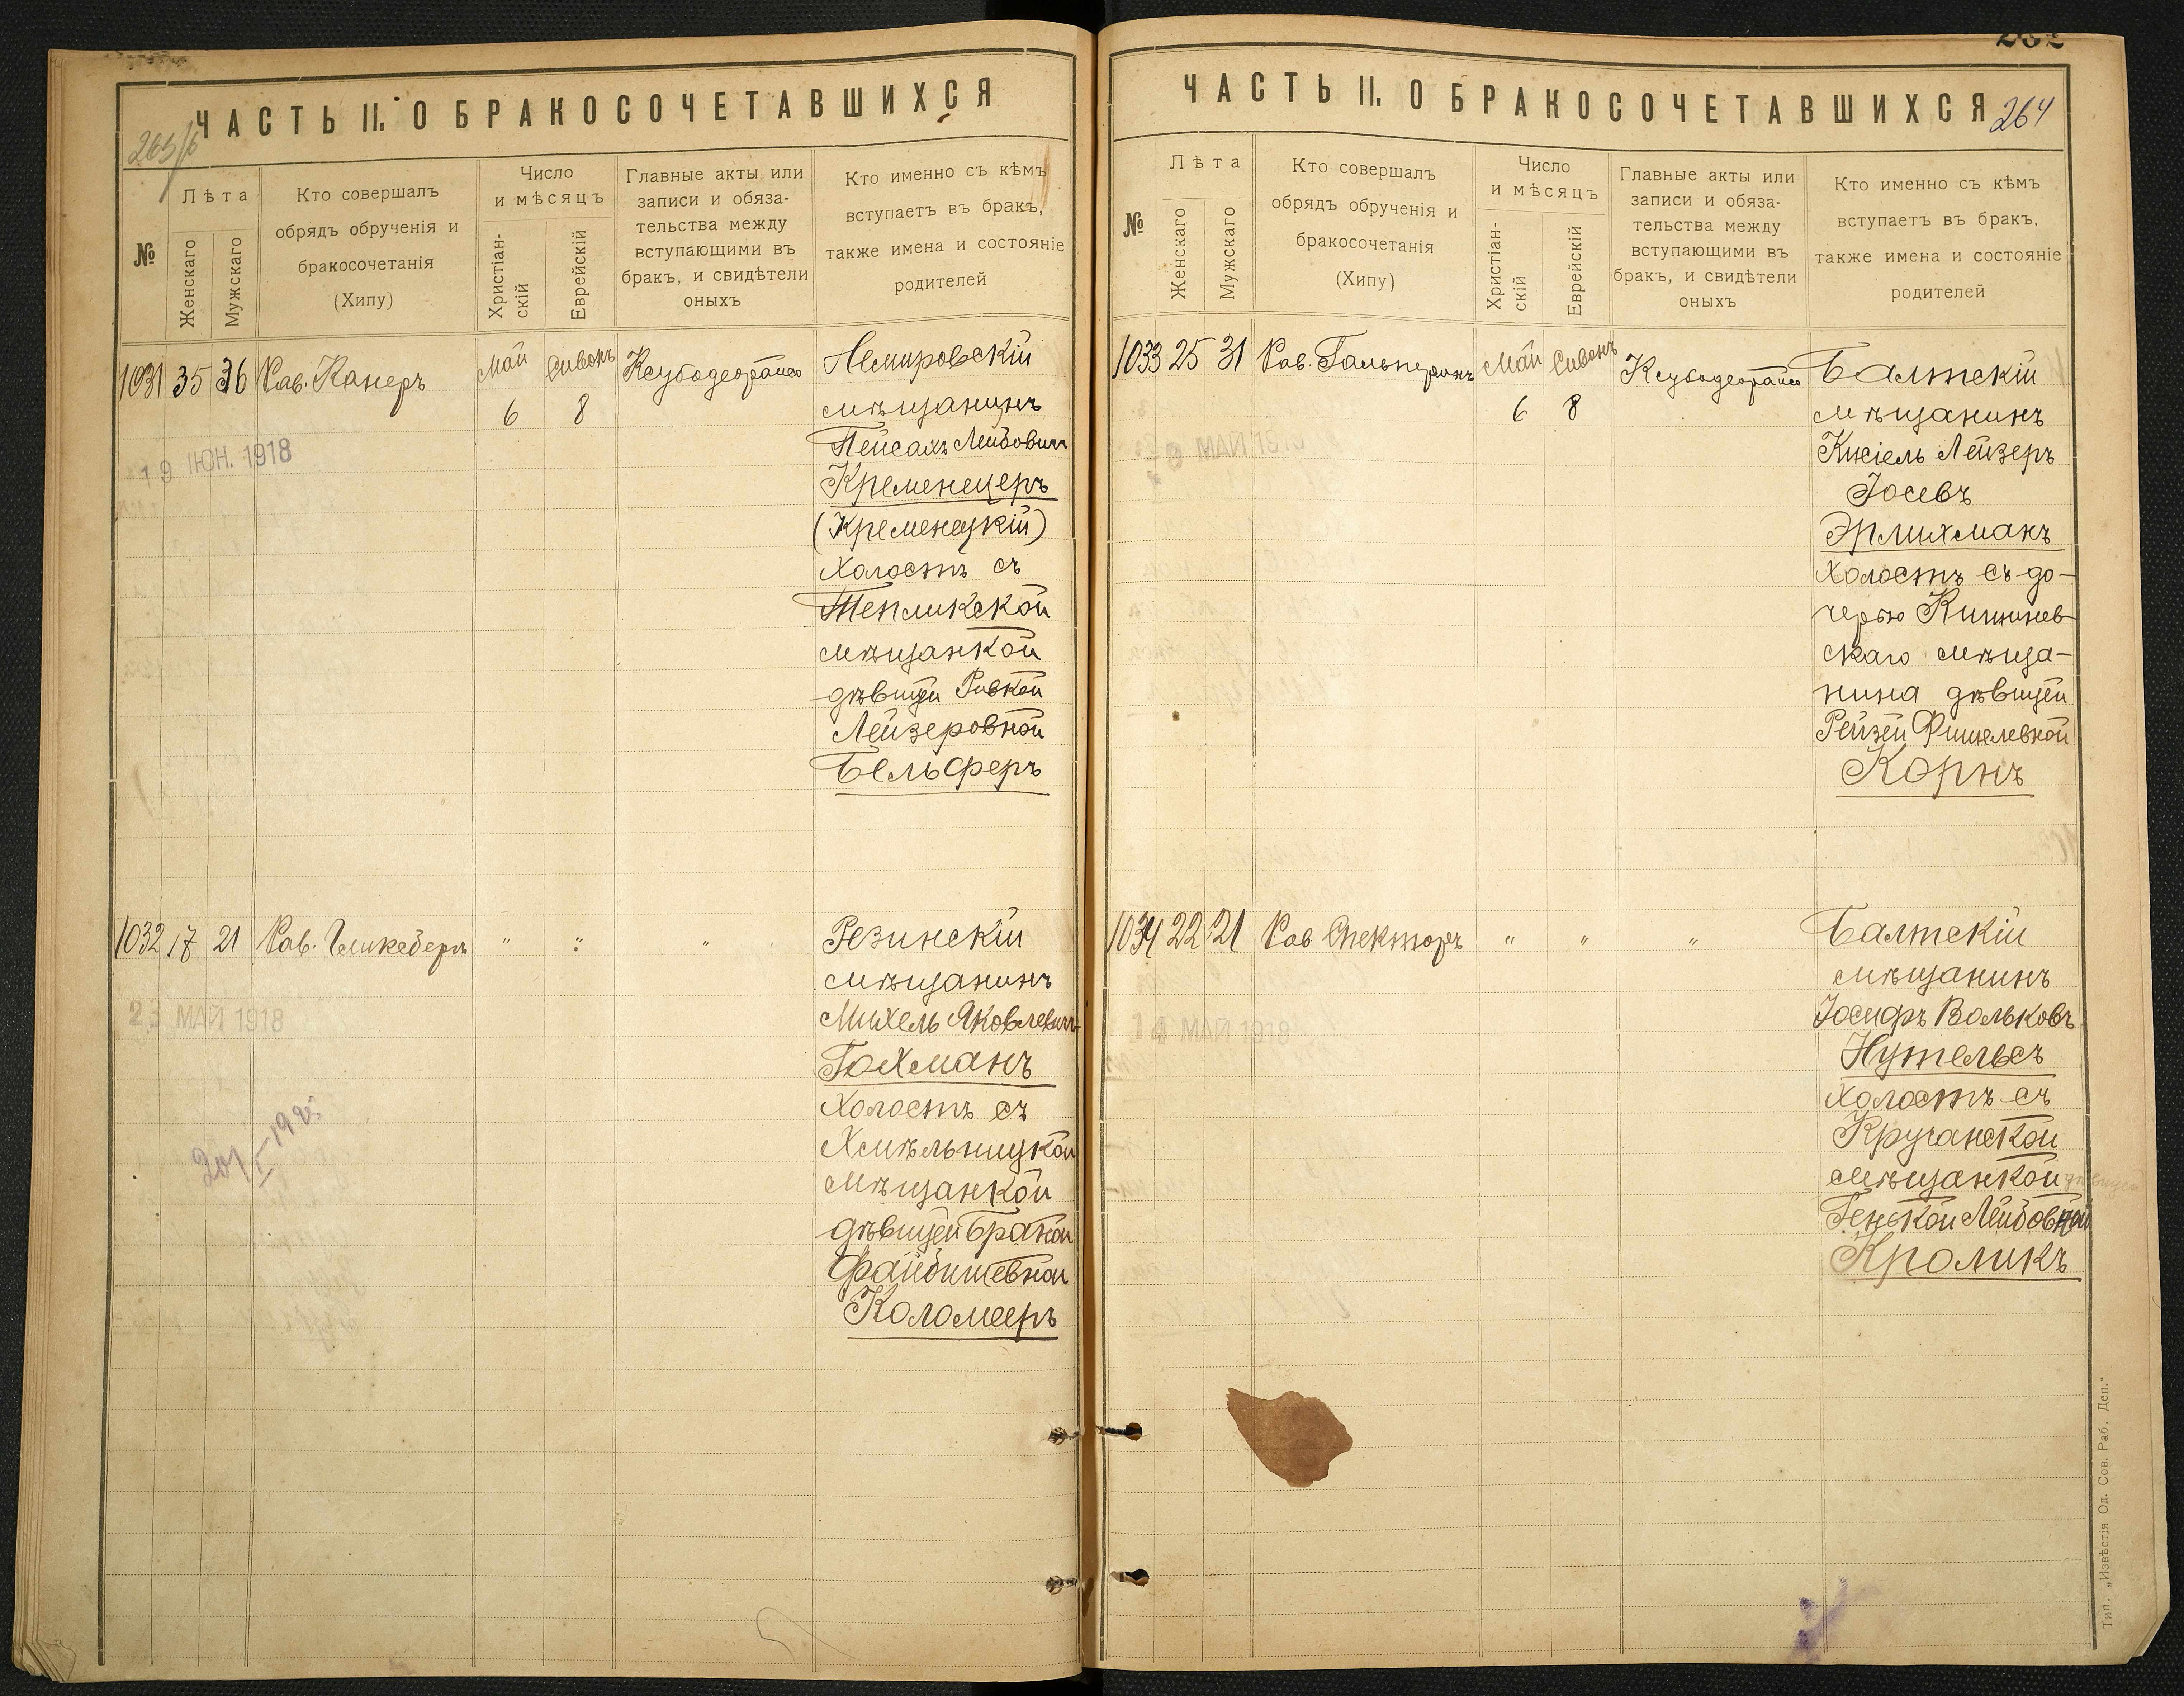 ЧАСТЬ II. О БРАКОСОЧЕТАВШИХСЯ
№
Лѣта
Женскаго
Мужскаго
Кто совершалъ
обрядъ обрученія и
бракосочетанія
(Хипу)
Число
и мѣсяцъ
Христіан-
скій
Еврейскій
Главные акты или
записи и обяза-
тельства между
вступающими въ
бракъ, и свидѣтели
оныхъ
Кто именно съ кѣмъ
вступаетъ въ бракъ,
также имена и состояніе
родителей
1031 35 36 Рав. Канеръ Май Сивонъ
6 8
Немировскій
мѣщанинъ
Пейсахъ Лейбовичъ
Кременецеръ
(Кременецкій)
холостъ съ
Тепликской
мѣщанкой
дѣвицей Ривкой
Лейзеровной
Бельферъ
19 ІЮН. 1918
1032 17 21 Рав. " " "
Резинскій
мѣщанинъ
Михель Яковлевичъ
Гохманъ
холостъ съ
Хмѣльницкой
мѣщанкой
дѣвицей Браной
Файбишевной
Коломееръ
23 МАЙ 1918
264
ЧАСТЬ II. О БРАКОСОЧЕТАВШИХСЯ
№
Лѣта
Женскаго
Мужскаго
Кто совершалъ
обрядъ обрученія и
бракосочетанія
(Хипу)
Число
и мѣсяцъ
Христіан-
скій
Еврейскій
Главные акты или
записи и обяза-
тельства между
вступающими въ
бракъ, и свидѣтели
оныхъ
Кто именно съ кѣмъ
вступаетъ въ бракъ,
также имена и состояніе
родителей
1033 25 31 Рав. Гальперинъ Май Сивонъ
6 8
Балтскій
мѣщанинъ
Кисіель Лейзеръ
Іосевъ
Эрлихманъ
холостъ съ до-
черью Кишинев-
скаго мѣща-
нина дѣвицей
Рейзей Фишелевной
Корнъ
1034 22 21 Рав Спекторъ " " "
Балтскій
мѣщанинъ
Іосифъ Вольковъ
Нутельсъ
холостъ съ
Кручанской
мѣщанкой дѣвицей
Генькой Лейбовной
Кроликъ
14 МАЙ 1918
Тип. „Извѣстія Од. Сов. Раб. Деп."